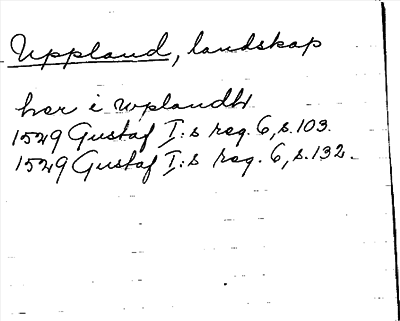 Uppland, landskap
her i wplandh
1529 Gustaf I:s reg. 6, s. 103.
1529 Gustaf I:s reg. 6, s. 132.